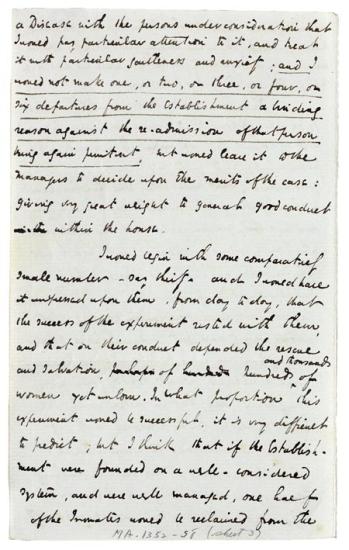 a Disease with the persons under consideration that
I would pay particular attention to it, and treat
it with particular gentleness and anxiety; and I
would not make one, or two, or three, or four, or
six departures from the Establishment a binding
reason against the re-admission of that person
being again penitent, but would leave it to the
managers to decide upon the merits of the case:
giving very great weight to general good conduct
within the house.
I would begin with some comparatively
small number - say thirty - and I would have
it impressed upon them, from day to day, that
the success of the experiment rested with them,
and that on their conduct depended the rescue
and salvation, of hundreds and thousands of
women yet unborn. In what proportion this
experiment would be successful, it is very difficult
to predict; but I think that if the Establish-
ment were founded on a well-considered
system, and were well managed, one half
of the Inmates would be reclaimed from the
MA-1352-58 (sheet 3)